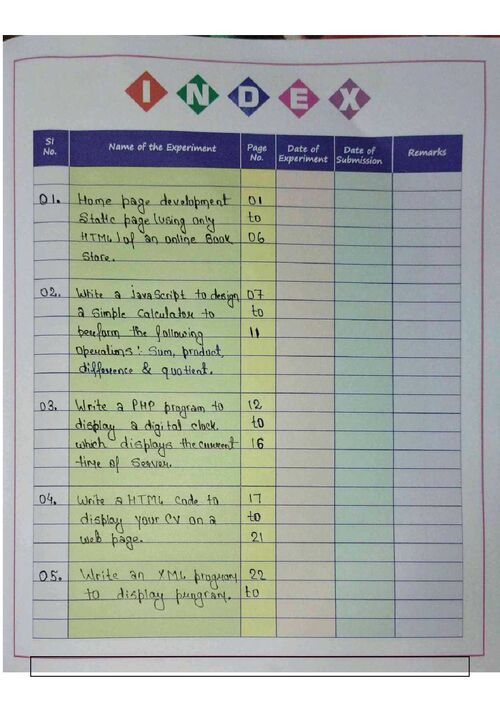 INDEX
Sl No. Name of the Experiment Page No. Date of Experiment Date of Submission Remarks
01. Home page development 01
Static page (using only to
HTML) of an online Book 06
Store.
02. Write a JavaScript to design 07
a simple calculator to to
perform the following 11
Operations: Sum, product,
difference & quotient.
03. Write a PHP program to 12
display a digital clock to
which displays the current 16
time of Server.
04. Write a HTML code to 17
display your CV on a to
web page. 21
05. Write an XML program 22
to display pungram. to